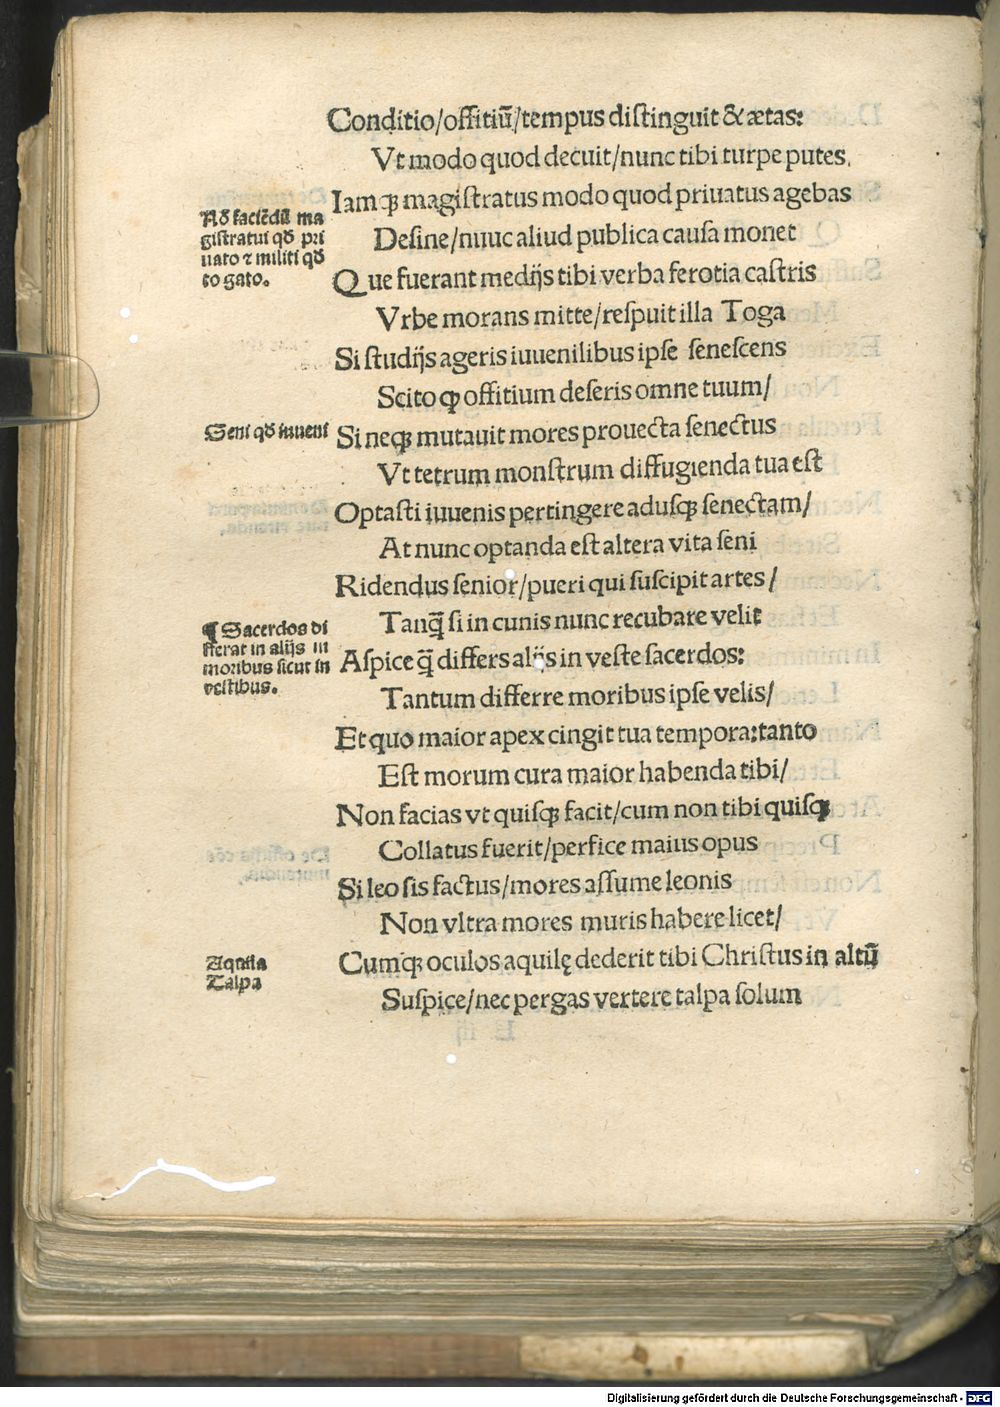 Conditio/offitiū/tempus diſtinguit & ætas:
Vt modo quod decuit/nunc tibi turpe putes.
Iamqꝫ magiſtratus modo quod priuatus agebas
Deſine/nuuc aliud publica cauſa monet
Que fuerant medijs tibi verba ferotia caſtris
Vrbe morans mitte/reſpuit illa Toga
Si ſtudijs ageris iuuenilibus ipſe ſeneſcens
Scito ꝙ offitium deſeris omne tuum/
Si neqꝫ mutauit mores prouecta ſenectus
Vt tetrum monſtrum diffugienda tua eſt
Optaſti iuuenis pertingere aduſqꝫ ſenectam/
At nunc optanda eſt altera vita ſeni
Ridendus ſenior/pueri qui ſuſcipit artes/
Tanq̃ ſi in cunis nunc recubare velit
Aſpice q̃ differs alijs in veſte ſacerdos:
Tantum differre moribus ipſe velis/
Et quo maior apex cingit tua tempora:tanto
Eſt morum cura maior habenda tibi/
Non facias vt quiſqꝫ facit/cum non tibi quiſqꝫ
Collatus fuerit/perfice maius opus
Si leo ſis factus/mores aſſume leonis
Non vltra mores muris habere licet/
Cumqꝫ oculos aquilę dederit tibi Chriſtus in altū
Suſpice/nec pergas vertere talpa ſolum
Nō faciēdū ma
giſtratui qď pri
uato ⁊ militi qď
togato.
Seni qď iuueni
¶ Sacerdos di
fferat in alijs in
moribus ſicut in
veſtibus.
Aquila
Talpa
Digitalisierung gefördert durch die Deutsche Forschungsgemeinschaft - DFG